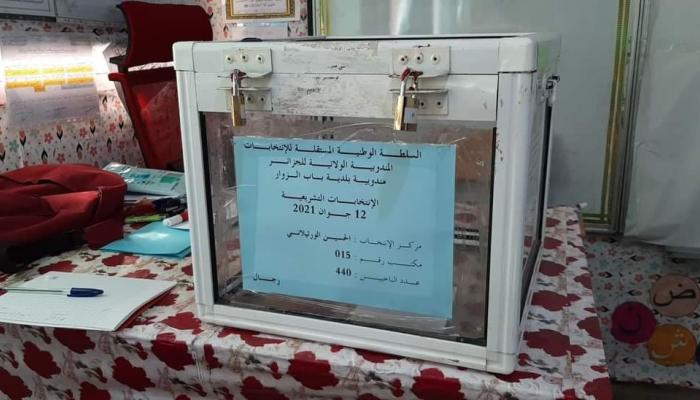 السلطة الوطنية المستقلة للإنتخابات
المندوبية الولائية للجزائر
مندوبية بلدية باب الزوار
الإنتخابات التشريعية
12 جوان 2021
مركز الإنتخاب : الحسين الورثيلاني
مكتب رقم : 015
عدد الناخبين : 440
رجال
ض
ن
ش